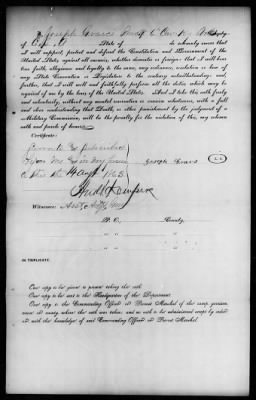 I, Joseph
of County of State of do solemnly swear that
I will support, protect and defend the Constitution and Government of the
United States against all enemies, whether domestic or foreign; that I will bear
true faith, allegiance and loyalty to the same, any ordinance, resolution or law of
any State Convention or Legislature to the contrary notwithstanding; and,
further, that I will well and faithfully perform all the duties which may be
required of me by the laws of the United States. And I take this oath freely
and voluntarily, without any mental reservation or evasion whatsoever, with a full
and clear understanding that Death, or other punishment by the judgment of a
Military Commission, will be the penalty for the violation of this, my solemn
oath and parole of honor.
Certificate:
before me
1863
Joseph
Witness:
D. C., County.
IN TRIPLICATE.
One copy to be given to person taking the oath.
One copy to be sent to the Headquarters of the Department.
One copy to the Commanding Officer or Provost Marshal of the camp, garrison,
town or county where the oath was taken; and no oath to be administered except by order
or with the knowledge of said Commanding Officer or Provost Marshal.